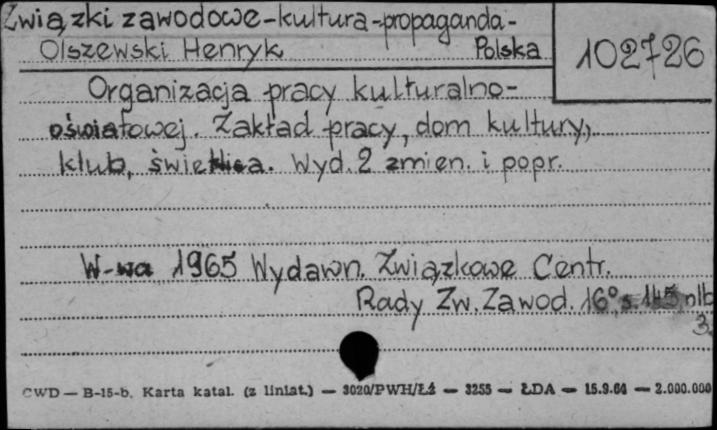 Związki zawodowe-kultura-propaganda-
Olszewski Henryk Polska
102726
Organizacja pracy kulturalno-
oświatowej. Zakład pracy, dom kultury,
klub, świetlica. Wyd. 2 zmien. i popr.
W-wa 1965 Wydawn. Związkowe Centr.
Rady Zw. Zawod. 16°, s. 145, nlb
3.
CWD — B-15-b. Karta katal. (z liniat.) — 3020/PWH/Łź — 3255 — ŁDA — 15.9.64 — 2.000.000